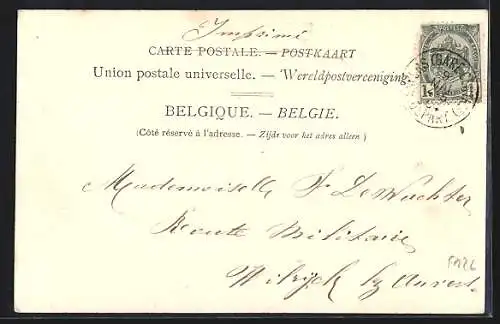 Imprimé
CARTE POSTALE. — POSTKAART
Union postale universelle. — Wereldpostvereeniging
BELGIQUE. — BELGIE.
(Côté réservé à l'adresse. — Zijde voor het adres alleen)
Mademoiselle F De Wachter
Route Militaire
Wilryck by Anvers